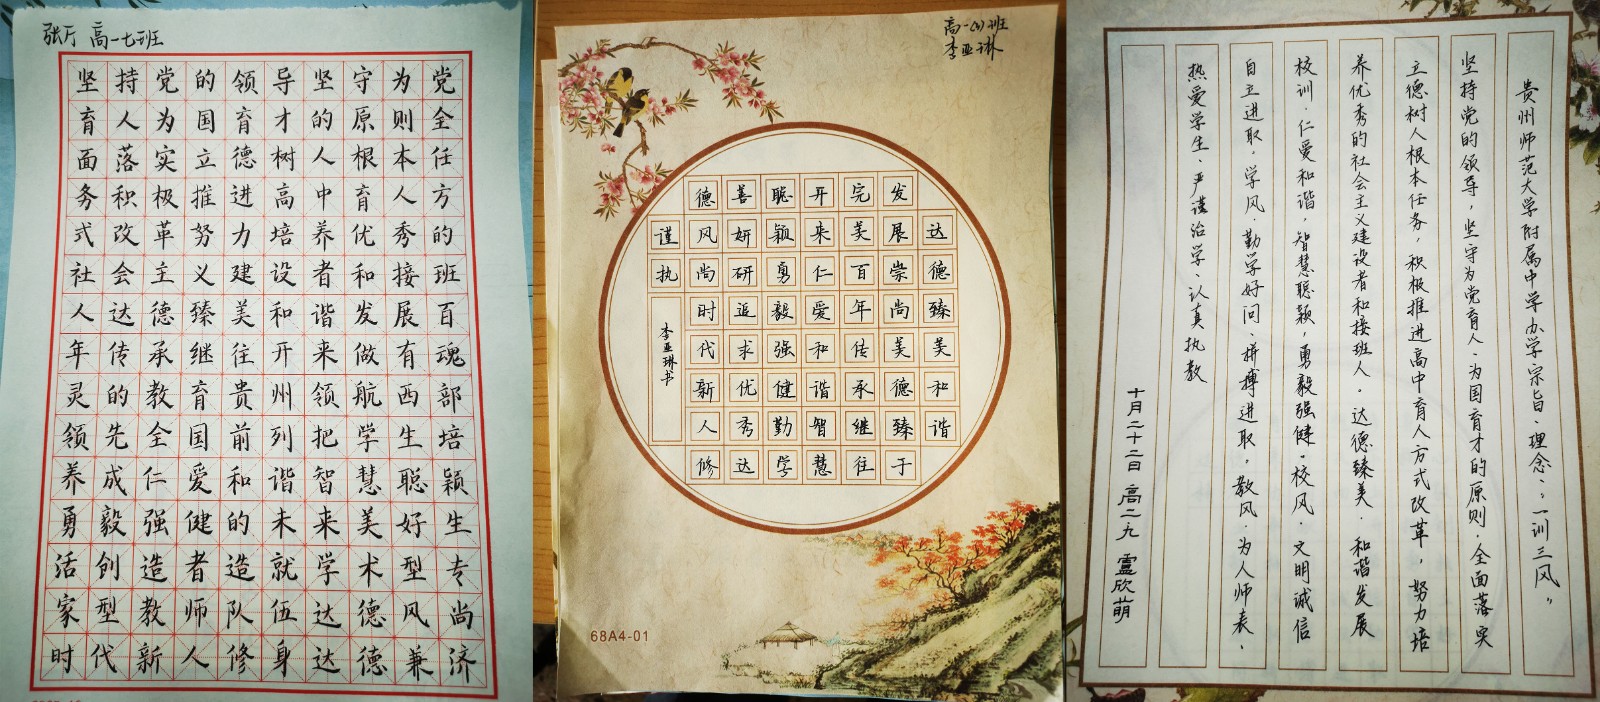 张厅 高一七班
坚持党的领导坚守为党
育人为国育才的原则全
面落实立德树人根本任
务积极推进高中育人方
式改革努力培养优秀的
社会主义建设者和接班
人达德臻美和谐发展百
年传承继往开来做有魂
灵的教育贵州领航西部
领先全国前列把学生培
养成仁爱和谐智慧聪颖
勇毅强健的未来美好生
活创造者造就学术型专
家型教师队伍达德风尚
时代新人修身达德兼济
高一(4)班
李亚琳
发展崇尚美德臻于
完美百年传承继往
开来仁爱和谐智慧
聪颖勇毅强健勤学
善妍研追求优秀达
德风尚时代新人修
谨执
达德臻美和谐
李亚琳书
68A4-01
贵州师范大学附属中学办学宗旨、理念:“一训三风”
坚持党的领导,坚守为党育人、为国育才的原则·全面落实
立德树人根本任务,积极推进高中育人方式改革,努力培
养优秀的社会主义建设者和接班人。达德臻美·和谐发展
校训·仁爱和谐,智慧聪颖,勇毅强健。校风·文明诚信
自立进取·学风·勤学好问、拼搏进取。教风·为人师表、
热爱学生、严谨治学、认真执教
十月二十二日 高二九 卢欣萌